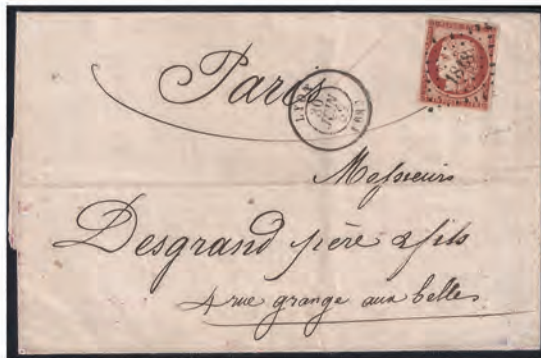 1818
Paris
LYON
30
JUIN
(68)
Messieurs
Desgrand père & fils
4 rue grange aux belles